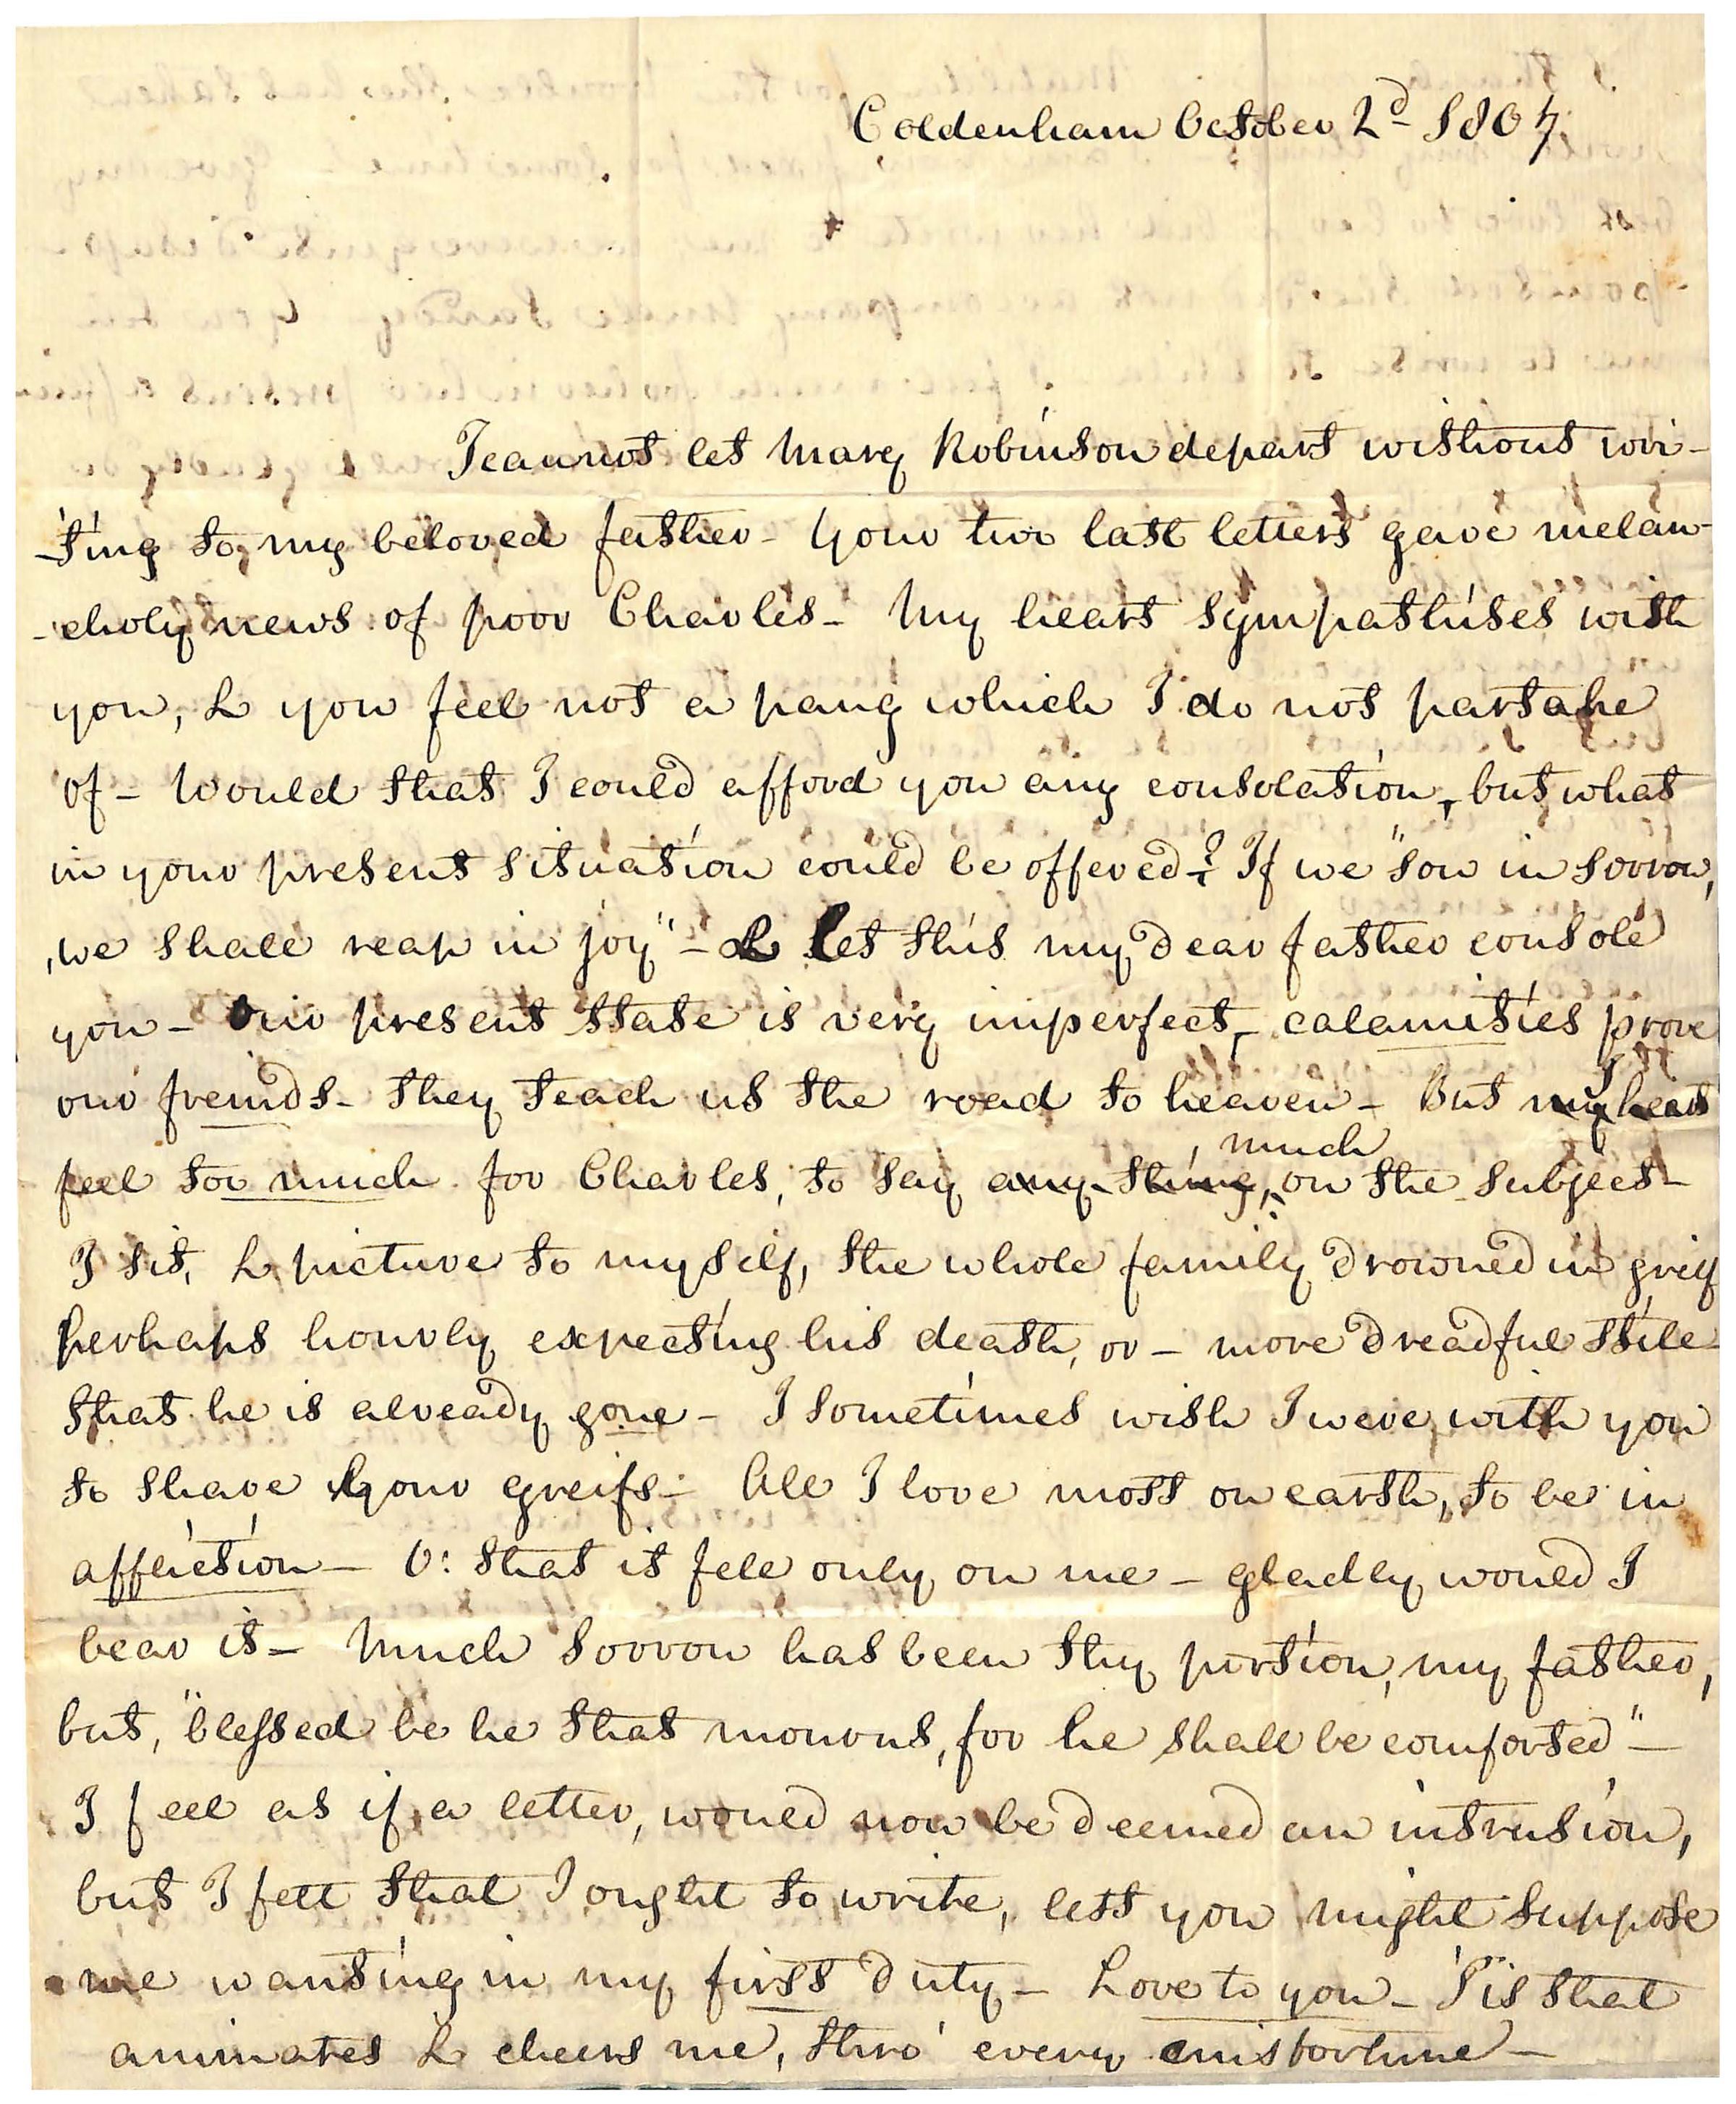 Coldenham October 2d 1804
I cannot let Mary Robinson depart without wri-
-ting to my beloved father - Your two last letters gave melan-
-choly news of poor Charles - My heart sympathises with
you, & you feel not a pang which I do not partake
of - Would that I could afford you any consolation, but what
in your present situation could be offered? If we "sow in sorrow,
we shall reap in joy" - & let this my dear father console
you - Our present state is very imperfect, calamities prove
our freinds - they teach us the road to heaven - But my heart I
feel too much for Charles, to say any thing, much on the subject -
I sit, & picture to myself, the whole family drowned in greif
perhaps hourly expecting his death, or - more dreadful still -
that he is already gone - I sometimes wish I were with you
to share your greifs - All I love most on earth, to be in
affliction - O: that it fell only on me - gladly would I
bear it - Much sorrow has been thy portion, my father,
but, "blessed be he that mourns, for he shall be comforted" -
I feel as if a letter, would now be deemed an intrusion,
but I felt that I ought to write, lest you might suppose
me wanting in my first duty - Love to you - 'Tis that
animates & cheers me, thro' every misfortune -